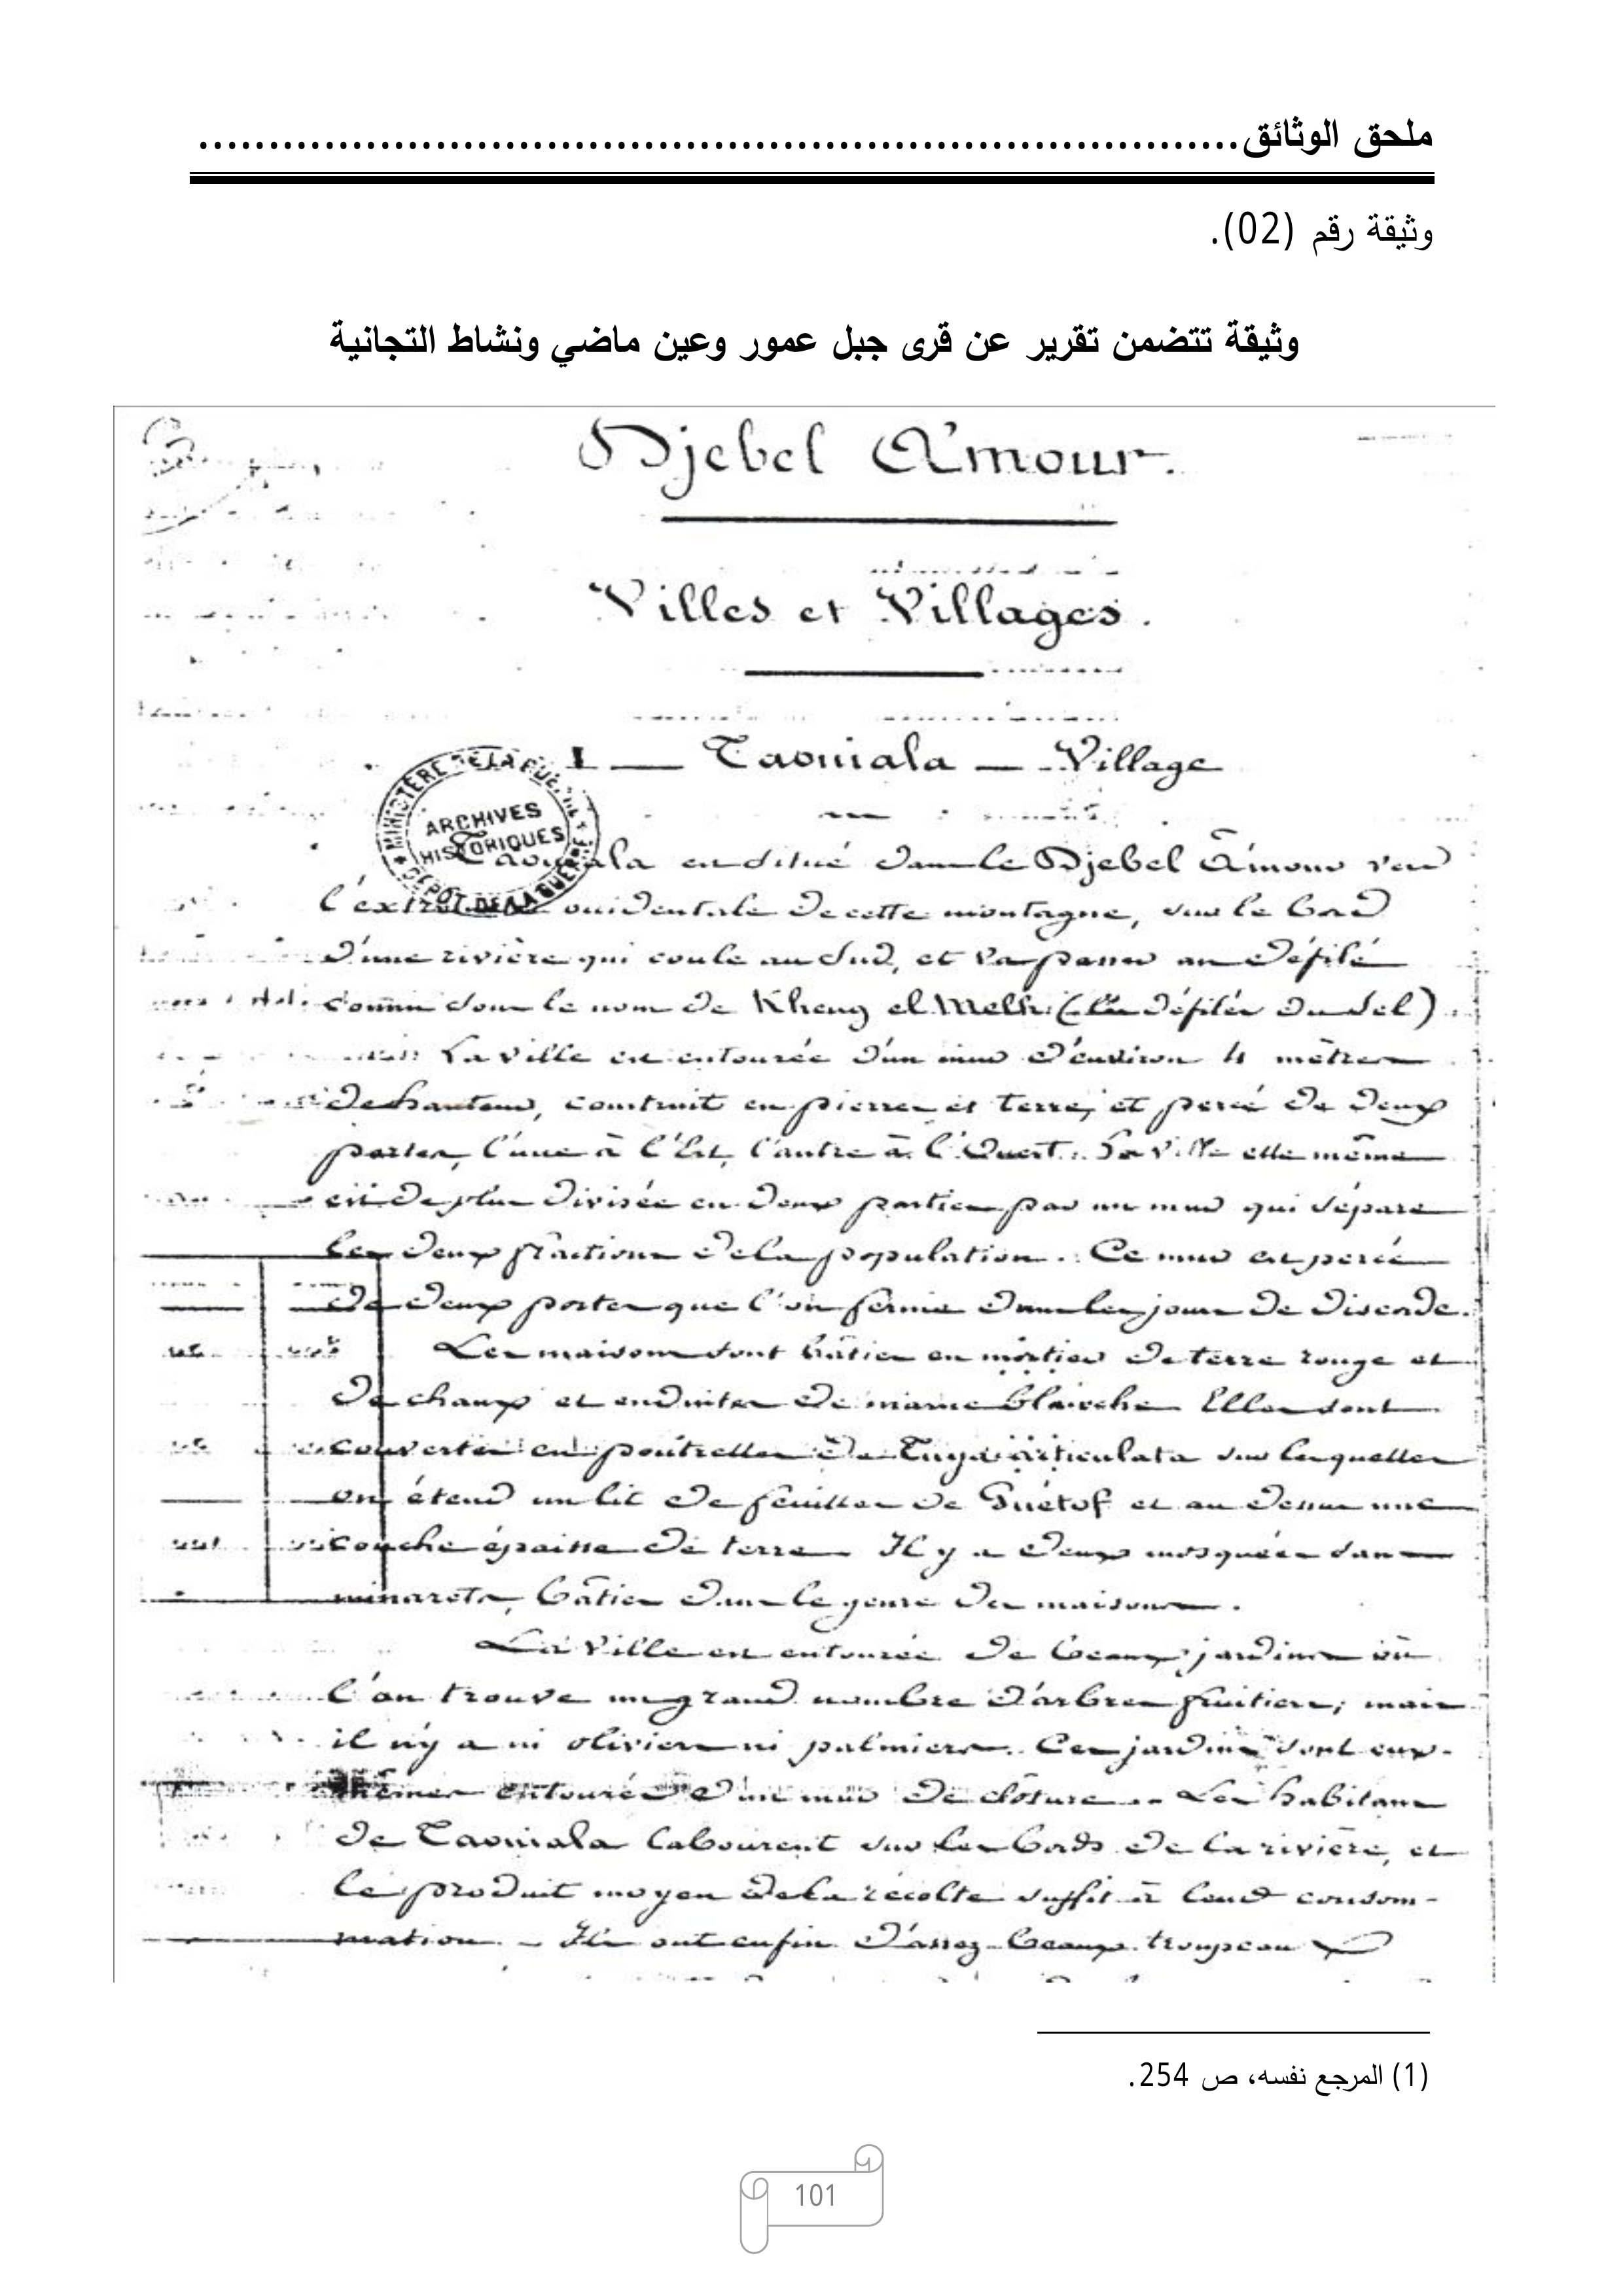 ملحق الوثائق..........................................................................
وثيقة رقم (02).
وثيقة تتضمن تقرير عن قرى جبل عمور وعين ماضي ونشاط التجانية
Djebel Amour.
Villes et Villages.
I — Taouiala — Village
MINISTÈRE DE LA GUERRE
ARCHIVES
HISTORIQUES
DÉPOT DE LA GUERRE
Taouiala est situé dans le Djebel Amour vers
l'extrémité occidentale de cette montagne, sur le bord
d'une rivière qui coule au Sud, et va passer au défilé
connu sous le nom de Kheng el Melh (les défilés du Sel).
La ville est entourée d'un mur d'environ 4 mètres
de hauteur, construit en pierres et terre, et percé de deux
portes, l'une à l'Est, l'autre à l'Ouest. La ville elle même
est de plus divisée en deux parties par un mur qui sépare
les deux fractions de la population. Ce mur est percé
de deux portes que l'on ferme dans les jours de discorde.
Les maisons sont bâties en mortier de terre rouge et
de chaux et enduites de marne blanche Elles sont
couvertes en poutrelles de Tuya articulata sur lesquelles
on étend un lit de feuilles de Guétof et au dessus une
couche épaisse de terre. Il y a deux mosquées sans
minarets, bâties dans le genre des maisons.
La Ville est entourée de beaux jardins où
l'on trouve un grand nombre d'arbres fruitiers; mais
il n'y a ni oliviers ni palmiers. Ces jardins sont eux-
mêmes entourés d'un mur de clôture. Les habitans
de Taouiala labourent sur les bords de la rivière, et
le produit moyen de la récolte suffit à leur consom-
mation. – Ils ont enfin d'assez beaux troupeaux
(1) المرجع نفسه، ص 254.
101